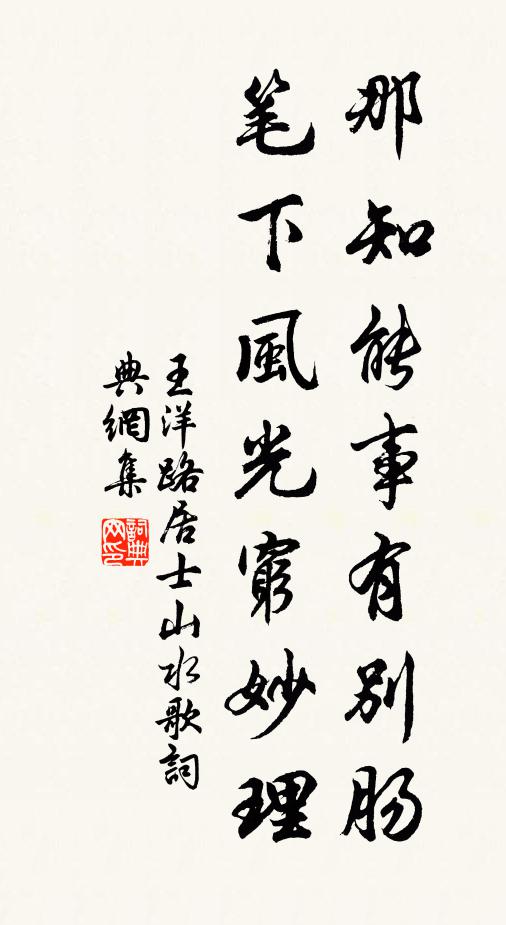 那知能事有別肠
笔下風光窮妙理
王洋路居士山水歌詞
典網集
詞典网印